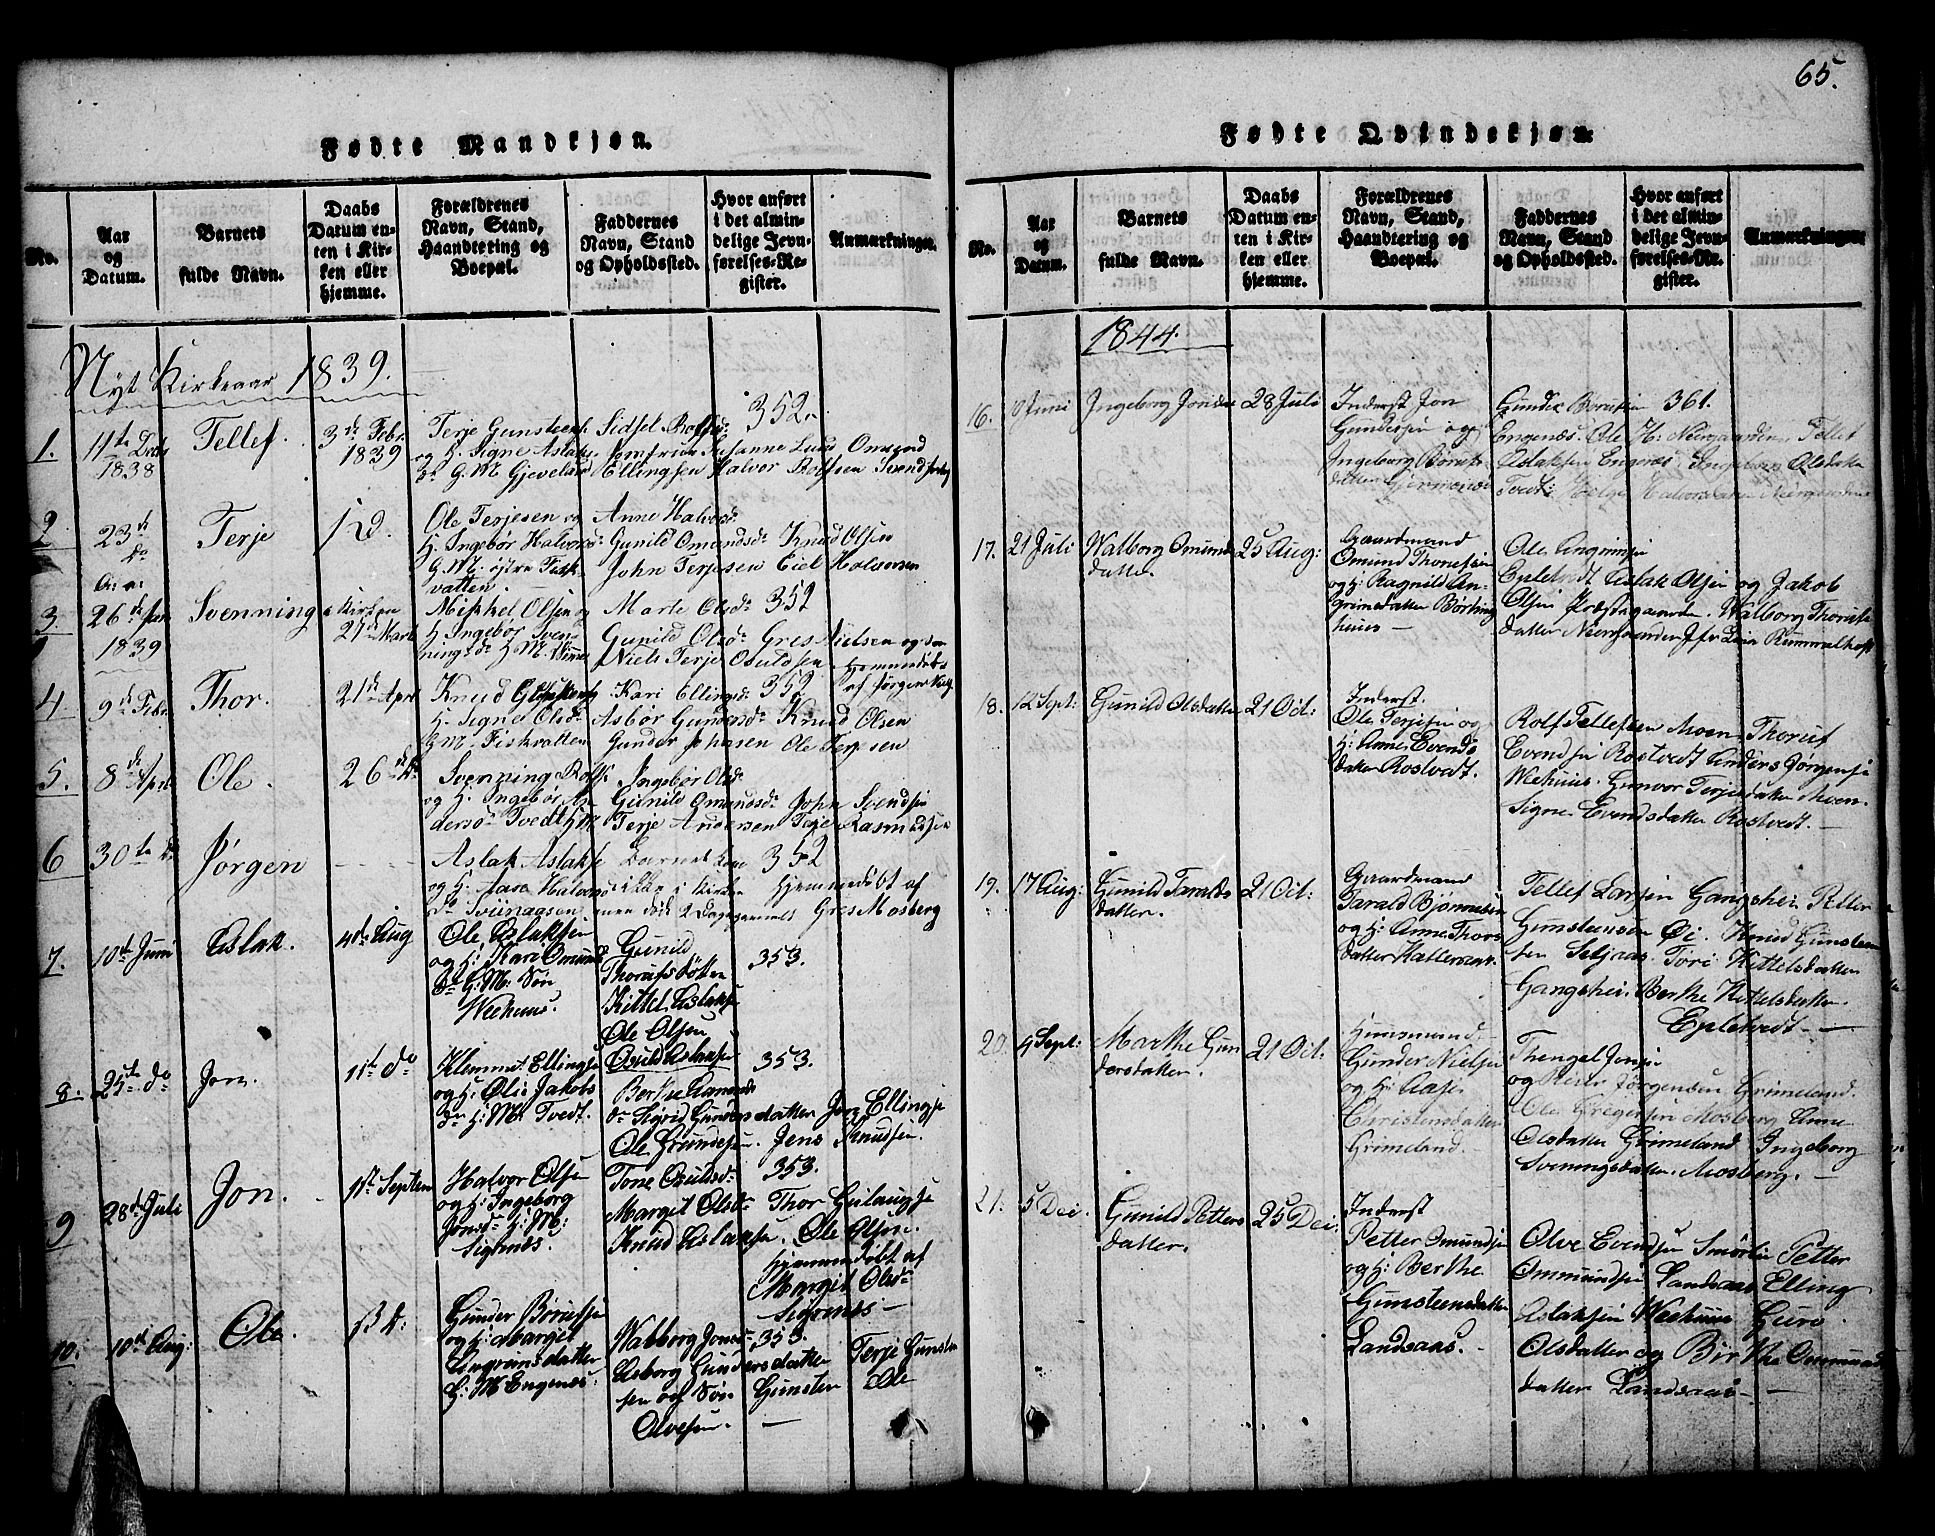 65.
Fødte Mandkjøn.
No.
Aar og Datum.
Barnets fulde Navn.
Daabs Datum enten i Kirken eller hjemme.
Forældrenes Navn, Stand, Haandtering og Boepæl.
Faddernes Navn, Stand og Opholdssted.
Hvor anført i det almindelige Jevnførelses-Register.
Anmærkninger.
Nyt Kirkeaar 1839.
1.
11te Decb
1838
Tellef.
3de Febr.
1839
Terje Gunsteens.
og H. Signe Aslaks
dr G. M. Gjeveland
Sidsel Rolfsd.
Jomfrue Susanne Lund Omund
Ellingsen Halvor Rolfsen Svend
352.
2
23de
do
Terje
1 d.
Ole Terjesen og
H. Ingebør Halvors
G. M. østre Fisk
vatten.
Anne Halvorsd:
Gunild Omundsd. Knud Olsen
John Terjesen Eiel Halvorsen
3
26de Jan
1839
Svenning
Kirken
Mikkel Olsen og
H. Ingebør Sven-
nings dr H. M.
Marte Olsd: 352
Gunild Olsd: Gres Nielsen og
Niels Terje Osuldsen
Hjemmedøbt
af Jørgen
4
9de Febr.
Thor.
21de Apr
Knud
H. Signe Olsd:
G. M. Fiskvatten
Kari Ellingsd: 352
Asbør Gundersd: Knud Olsen
Gunder Johnsen Ole Terjesen
5.
8de Apr.
Ole.
26de do
Svenning Rolfs
og H. Ingebør An
dersd. Tvedt H M
Ingebør Olsd:
Gunild Omundsd: John Svendsen
Terje Andersen Terje Rasmusen
6
30te do
Jørgen
Aslak Aslaks
og H. Halvors
dr Sviinaasen
Barnet kom 352
ikke i Kirken Hjemmedøbt af
men døde 2 Dage gammelt Gres Mosberg
7.
10de Juni
Aslak.
4de Aug
Ole Aslaksen
og H. Kari Omunds
dr G. M. Søn
Weehuus.
Gunild
Thorufsdatter
Kittel Aslaks
Ole Olsen
353.
8.
25te do
Jon.
11te do
Klemmet Ellings
og H: Olie Jakobs
dr H. M. Tvedt.
Osuld Aslaksen
Berthe
dr Sigrid Gundersdatter Jorg Ellingse
Ole Gundersen. Jens Knudsen.
353.
9
28de Juli
Jon.
1ste Septem
Halvor Olsen
og H: Ingeborg
Jonsdr H: M:
Sigernes.
Tone Osuldsd:
Margit Olsdr
Knud Aslaksen.
353.
Thor Guilaugse
Ole Olsen.
Hjemmedøbt af
Margit Olsdr
Sigernes
10.
10de Aug:
Ole.
13 d:
Gunder Børufse
og H: Marget
Angrimsdatter
G. M Engenes.
Walborg Jonsd: 353.
Asborg Gundersdatter
sen og Søn Gunsten
Olvesen.
Terje Gunste
Ole
Fødte Qvindekjøn.
No.
Aar og Datum.
Barnets fulde Navn.
Daabs Datum enten i Kirken eller hjemme.
Forældrenes Navn, Stand, Haandtering og Boepæl.
Faddernes Navn, Stand og Opholdssted.
Hvor anført i det almindelige Jevnførelses-Register.
Anmærkninger.
1844.
16.
Juni
Ingeborg Jonsd
28 Juli
Inderst Jon
Gundersen og
Ingeborg Børufs
datter
Gunder Børufsen 361.
Engenæs. Ole H: Neergaarden Tellef
Aslaksen Engenæs. Ingeborg Olsdatter
Tvedt: Helge Halvorsdatter Neergaarden
17.
21 Juli
Walborg Omunds
datter.
25 Aug:
Gaardmand
Omund Thorufsen
og H: Ragnild An-
grimsdatter Børting
huus
Ole Angrimsen
Epletvedt Aslak Olsen og Jakob
Olsen Præstegaarden. Walborg Thorufs
datter Neergaarden Jfr Rummelhoff
18.
12 Sept:
Gunild Olsdatter
21 Oct:
Inderst.
Ole Terjesen og
H: Anne Evends
datter Rostvedt.
Rolf Tellefsen Moen, Thoruf
Evendsen Rostvedt Anders Jørgense
Weehuus. Gunvor Terjesdatter Moen.
Signe Evendsdatter Rostvedt.
19.
17 Aug:
Gunild Taralds
datter.
21 Oct:
Gaardmand
Tarald Bjørnsen
og H: Anne Thors
datter
Tellef Larsen Gangshei. Petter
Gunsteensen Øi. Knud Gunsteen
sen Seljaas. Tori Kittelsdatter
Gangshei. Berthe Kittelsdatter
Epletvedt
20.
4 Sept:
Marthe Gun
dersdatter.
21 Oct:
Huusmand
Gunder Nielsen
og H: Aase
Christensdatter
Grimeland.
Thengel Jonsen
og Reier Jørgensen Grimeland.
Ole Gregersen Mosberg Anne
Olsdatter Grimeland Ingeborg
Sveningsdatter Mosberg.
21.
5 Dec.
Gunild Petters
datter.
25 Dec.
Inderst
Petter Omundsen
og H: Berthe
Gunsteensdatter
Landaas.
Olve Evendsen Smørlie Petter
Ommundsen Landaas Elling
Aslaksen Weehuus Guro
Olsdatter og Birthe Ommunds
datter Landaas